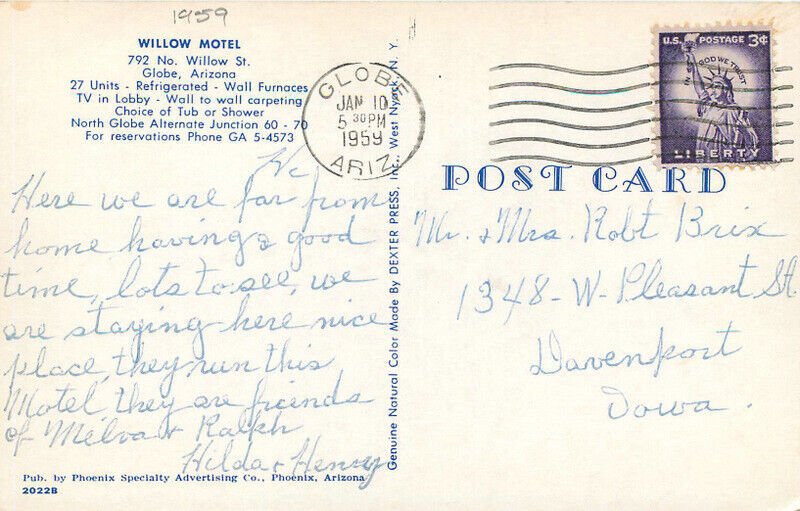 1959
WILLOW MOTEL
792 No. Willow St.
Globe, Arizona
27 Units - Refrigerated - Wall Furnaces
TV in Lobby - Wall to wall carpeting
Choice of Tub or Shower
North Globe Alternate Junction 60 - 70
For reservations Phone GA 5-4573
Here we are far from
home having a good
time, lots to see, we
are staying here nice
place, they run this
Motel, they are friends
of Melva & Ralph
Hilda & Henry
Pub. by Phoenix Specialty Advertising Co., Phoenix, Arizona
2022B
Genuine Natural Color Made By DEXTER PRESS, Inc., West Nyack, N. Y.
GLOBE
JAN 10
5 30 PM
1959
ARIZ.
U.S. POSTAGE 3¢
IN GOD WE TRUST
LIBERTY
POST CARD
Mr. & Mrs. Robt Brix
1348-W-Pleasant St.
Davenport
Iowa.